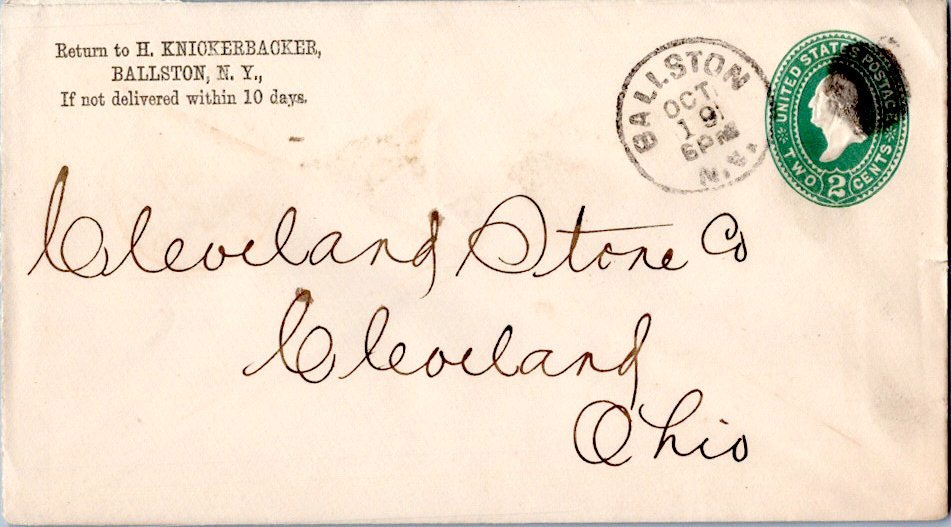 Return to H. KNICKERBACKER,
BALLSTON, N. Y.,
If not delivered within 10 days.
BALLSTON
OCT
19
6 PM
N.Y.
UNITED STATES POSTAGE
TWO 2 CENTS
Cleveland Stone Co
Cleveland
Ohio